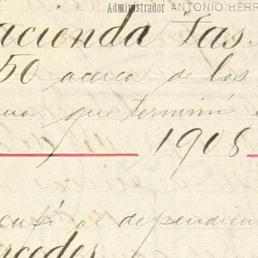 Administrador ANTONIO HERR
acienda Las
50 acerca de los
que termin
1908
al dependien
ercedes